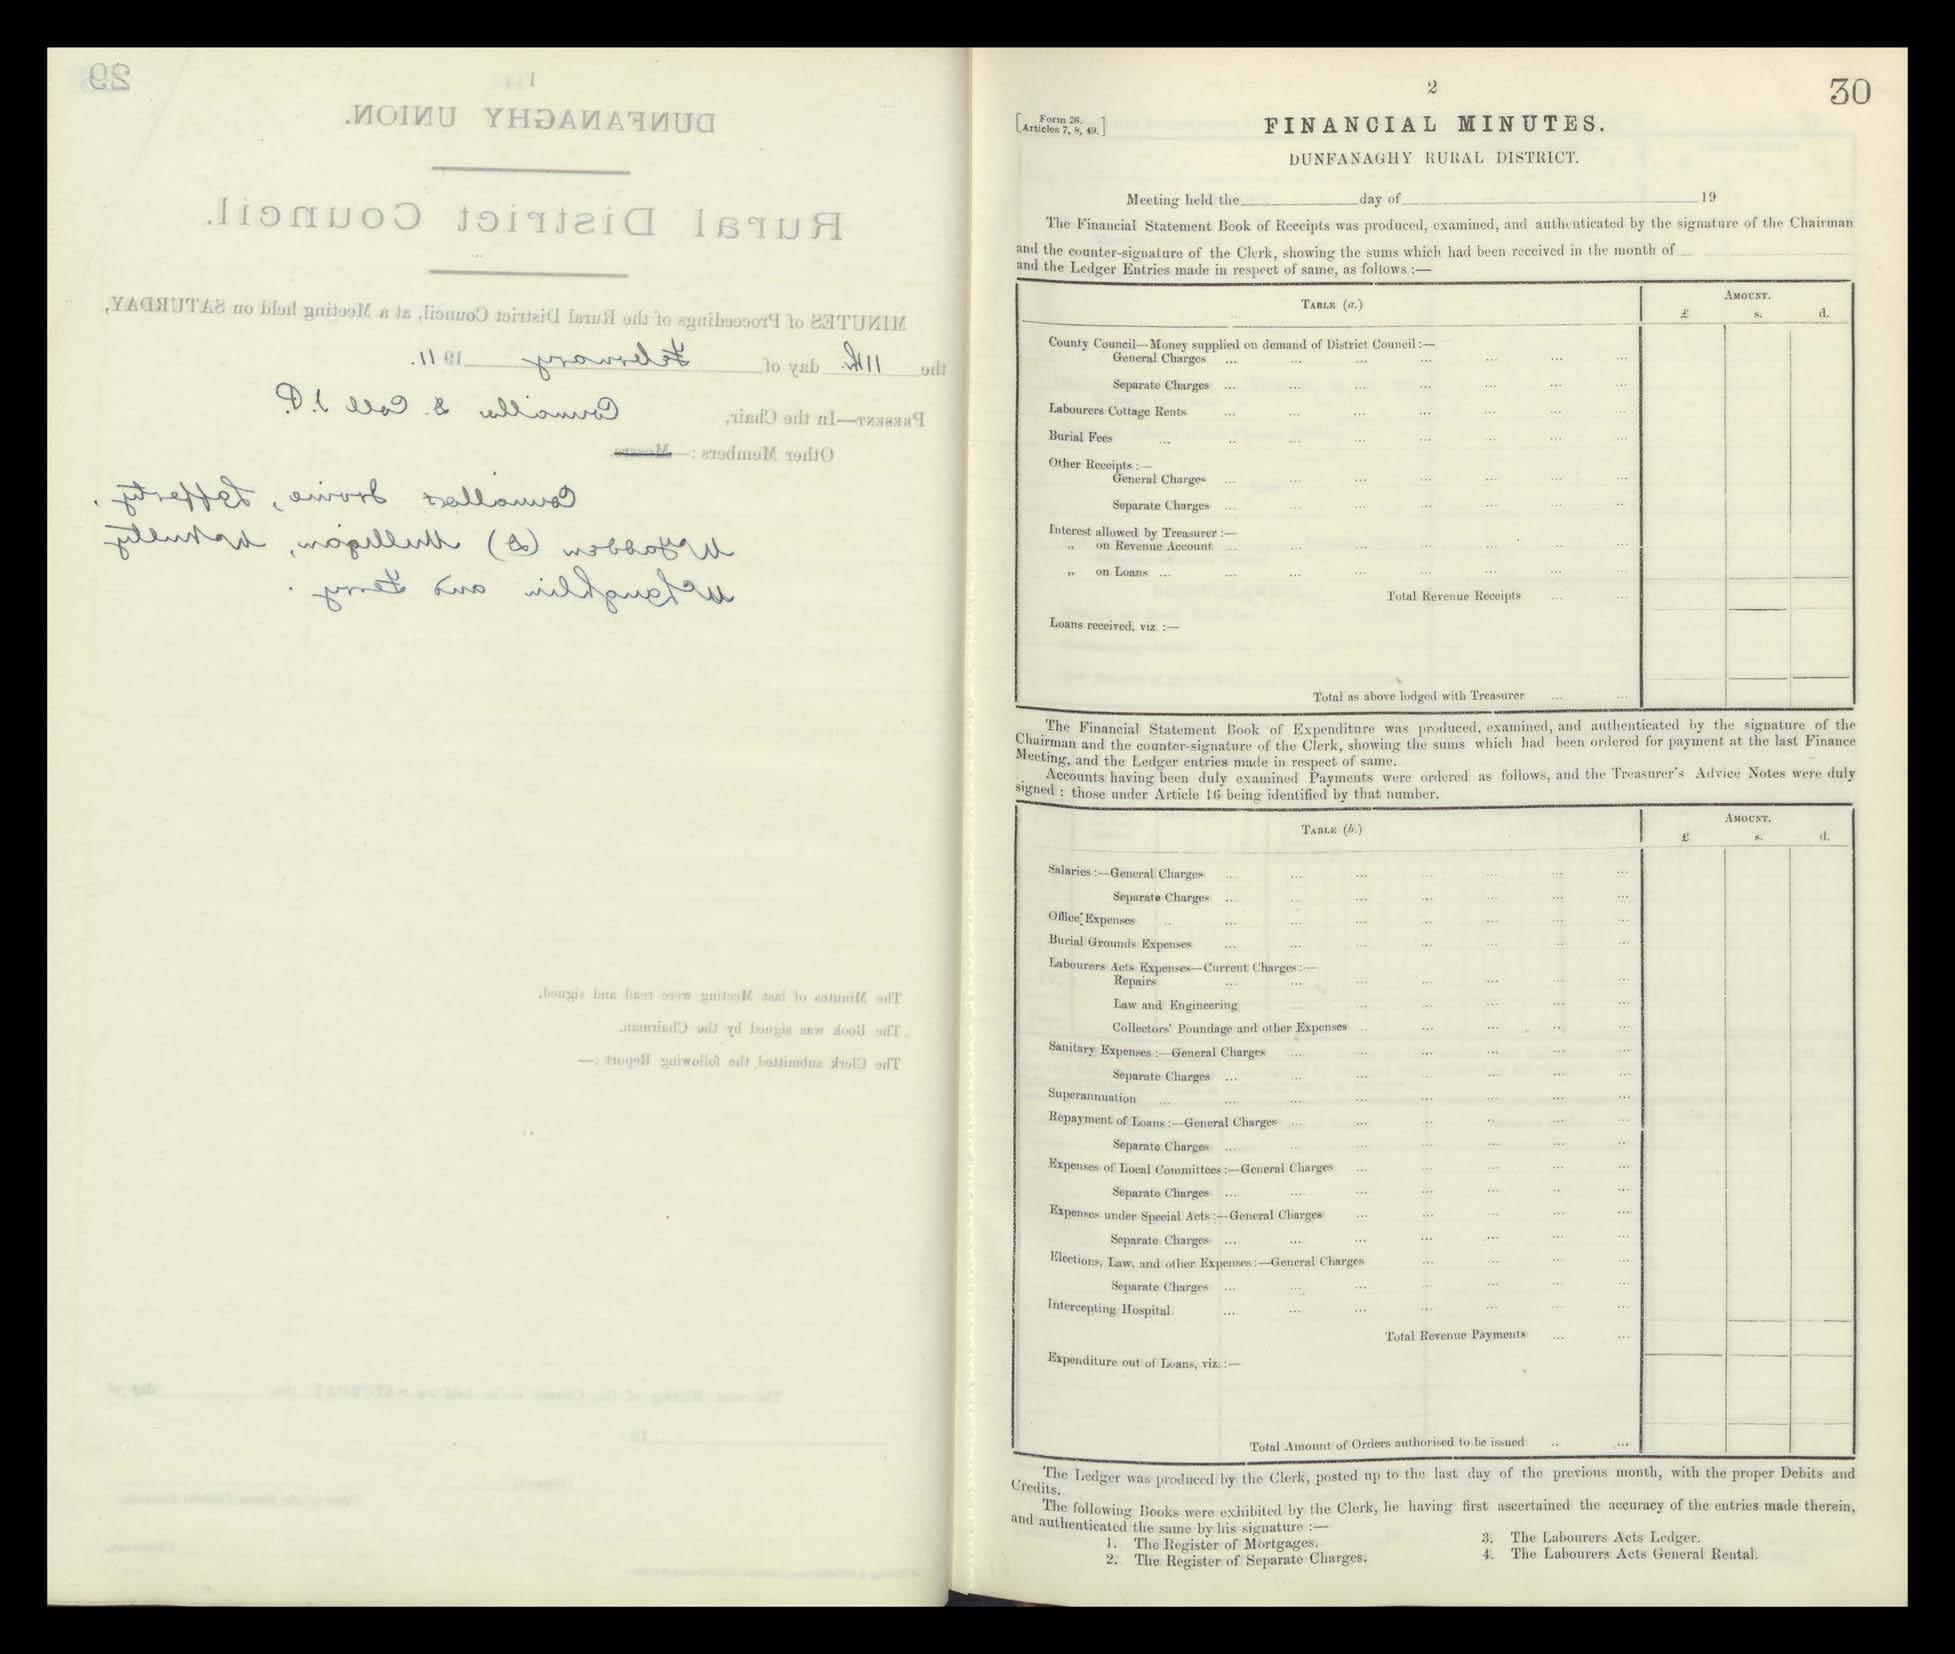 29
1
DUNFANAGHY UNION.
Rural District Council.
MINUTES of Proceedings of the Rural District Council, at a Meeting held on SATURDAY,
the 11th. day of February 1911.
PRESENT—In the Chair, Councillor S. Coll J.P.
Other Members :— Messrs.
Councillors Irvine, Lafferty,
McFadden (D) Mulligan, McNulty
McLaughlin and Ferry.
The Minutes of last Meeting were read and signed.
The Book was signed by the Chairman.
The Clerk submitted the following Report :—
2
30
[Form 26. Articles 7, 8, 49.]
FINANCIAL MINUTES.
DUNFANAGHY RURAL DISTRICT.
Meeting held the day of 19
The Financial Statement Book of Receipts was produced, examined, and authenticated by the signature of the Chairman
and the counter-signature of the Clerk, showing the sums which had been received in the month of
and the Ledger Entries made in respect of same, as follows :—
TABLE (a.) AMOUNT.
£ s. d.
County Council—Money supplied on demand of District Council :—
General Charges ... ... ... ... ... ... ...
Separate Charges ... ... ... ... ... ... ...
Labourers Cottage Rents ... ... ... ... ... ... ...
Burial Fees ... .. ... ... ... ... ... ...
Other Receipts :—
General Charges ... ... ... ... ... ... ...
Separate Charges ... ... ... ... ... ... ..
Interest allowed by Treasurer :—
„ on Revenue Account ... ... ... ... ... .. ...
„ on Loans ... ... ... ... ... ... ... ...
Total Revenue Receipts ... ...
Loans received, viz. :—
Total as above lodged with Treasurer ... ...
The Financial Statement Book of Expenditure was produced, examined, and authenticated by the signature of the
Chairman and the counter-signature of the Clerk, showing the sums which had been ordered for payment at the last Finance
Meeting, and the Ledger entries made in respect of same.
Accounts having been duly examined Payments were ordered as follows, and the Treasurer's Advice Notes were duly
signed : those under Article 16 being identified by that number.
TABLE (b.) AMOUNT.
£ s. d.
Salaries :—General Charges ... ... ... ... ... ... ...
Separate Charges ... ... ... ... ... ... ...
Office Expenses .. ... ... ... ... ... ... ...
Burial Grounds Expenses ... ... ... ... ... .. ...
Labourers Acts Expenses—Current Charges :—
Repairs ... ... ... ... ... ... ...
Law and Engineering ... ... ... ... ...
Collectors' Poundage and other Expenses .. ... ... .. ...
Sanitary Expenses :—General Charges ... ... ... ... ... ...
Separate Charges ... ... ... ... ... ... ...
Superannuation ... ... ... ... ... ... ... ...
Repayment of Loans :—General Charges ... ... .. .. ... ...
Separate Charges ... .. ... ... ... ... ..
Expenses of Local Committees :—General Charges ... ... ... .. ...
Separate Charges ... ... ... ... ... .. ...
Expenses under Special Acts :—General Charges ... ... ... ... ...
Separate Charges ... ... ... ... ... ... ...
Elections, Law, and other Expenses :—General Charges ... ... ... ...
Separate Charges ... ... ... ... ... ... ...
Intercepting Hospital ... ... ... ... ... ... ...
Total Revenue Payments ... ...
Expenditure out of Loans, viz. :—
Total Amount of Orders authorised to be issued .. ...
The Ledger was produced by the Clerk, posted up to the last day of the previous month, with the proper Debits and
Credits.
The following Books were exhibited by the Clerk, he having first ascertained the accuracy of the entries made therein,
and authenticated the same by his signature :—
1. The Register of Mortgages.
2. The Register of Separate Charges.
3. The Labourers Acts Ledger.
4. The Labourers Acts General Rental.